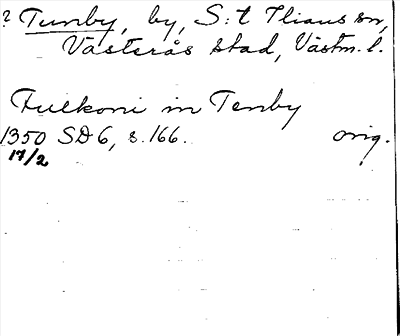 ? Tunby, by, S:t Ilians sn,
Västerås stad, Västm. l.
Fulkoni in Tenby
1350 SD 6, s. 166. orig.
17/2